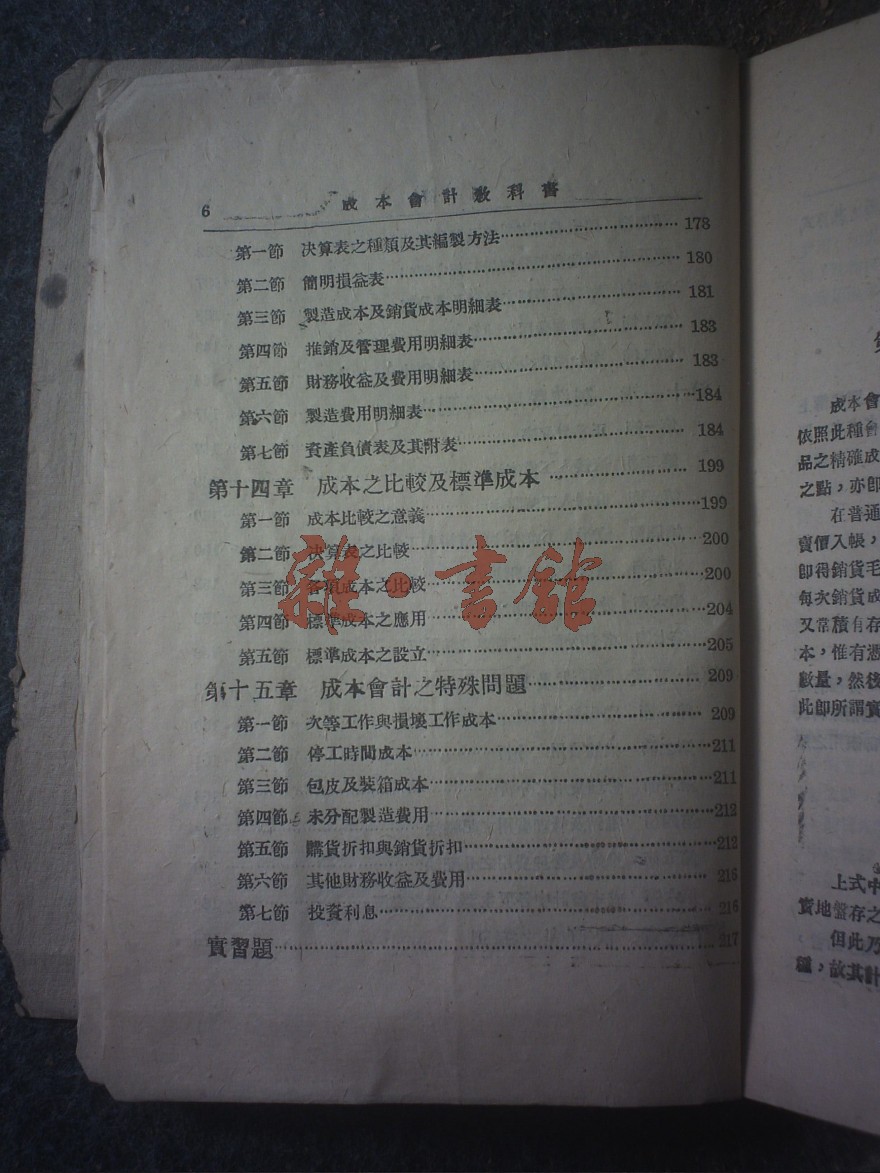 6 成本會計教科書
第一節 決算表之種類及其編製方法 178
第二節 簡明損益表 180
第三節 製造成本及銷貨成本明細表 181
第四節 推銷及管理費用明細表 183
第五節 財務收益及費用明細表 183
第六節 製造費用明細表 184
第七節 資產負債表及其附表 184
第十四章 成本之比較及標準成本 199
第一節 成本比較之意義 199
第二節 決算表之比較 200
第三節 各項成本之比較 200
第四節 標準成本之應用 204
第五節 標準成本之設立 205
第十五章 成本會計之特殊問題 209
第一節 次等工作與損壞工作成本 209
第二節 停工時間成本 211
第三節 包皮及裝箱成本 211
第四節 未分配製造費用 212
第五節 購貨折扣與銷貨折扣 213
第六節 其他財務收益及費用 216
第七節 投資利息 216
實習題 217
雜·書館
成本會
依照此種會
品之精確成
之點，亦卽
在普通
賣價入帳，
卽得銷貨毛
每次銷貨成
又常積有存
本，惟有憑
數量，然後
此卽所謂實
上式中
實地盤存之
但此乃
種，故其計